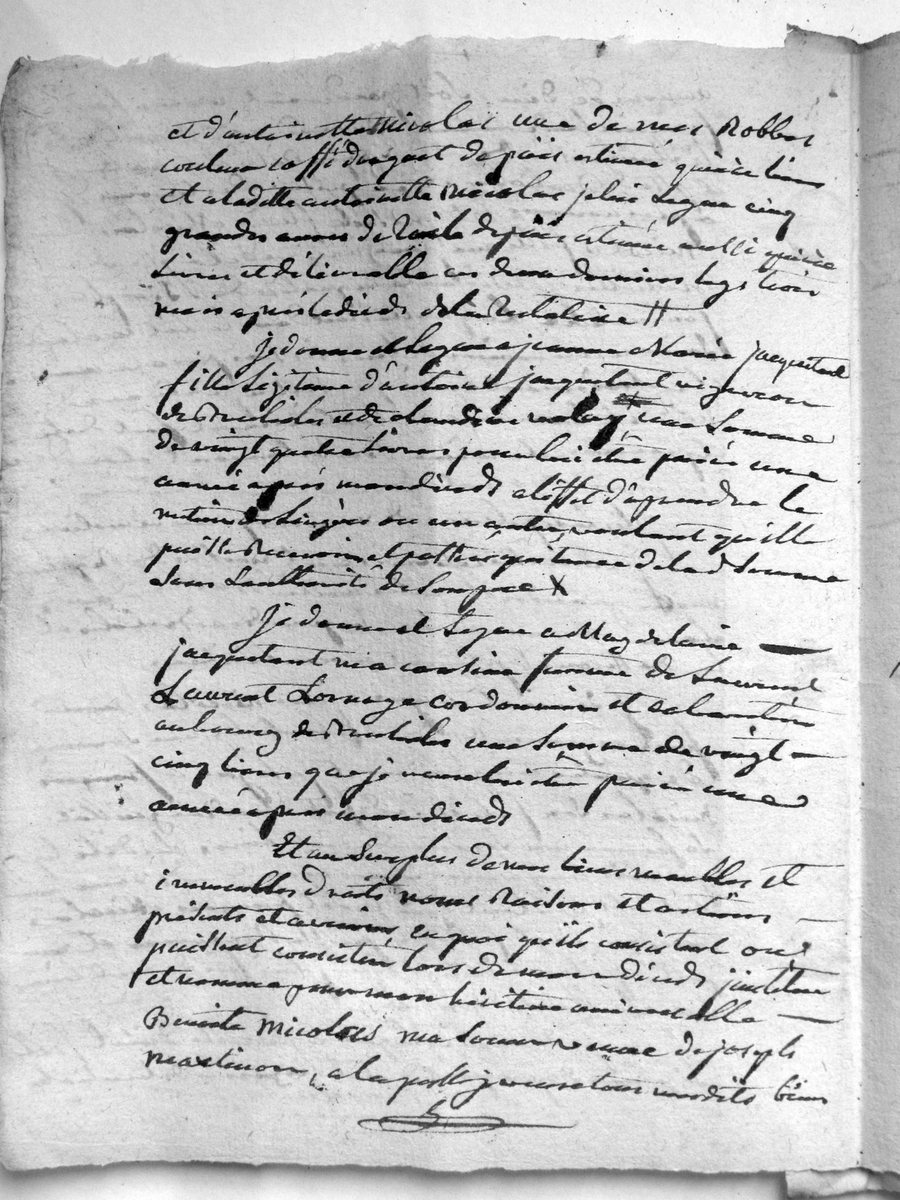 et d'antoinette Nicolas une de mes Robbes
couleur caffé d'argent de pois estimé quinze livres
et a laditte antoinette Nicolas je luis Legue cinq
grandes aunes de toile de pois estimée aussi quinze
Livres et délivrable en deux trois
mois après le décès de la //
Je donne et Legue a jeanne Marie jacquetant
fille Légitime d'antoine jacquetant vigneron
de et de claudine une Somme
de vingt quatre Livres pour lui être paiée une
année après mon décéds a l'effet d'aprendre le
métier de Lingère ou un autre, voulant qu'elle
puisse Recevoir et passer quittance de lad. Somme
Sans Lauthorité de Son père X
Je donne et Legue a Magdelaine —
jacquetant ma cousine femme de Laurent
Laurent cordonnier et cabaretier
au bourg de une Somme de vingt —
cinq livres que je veux lui être paiée une
année après mon décéds
Et au Surplus de mes biens meubles et
immeubles droits noms Raisons et actions —
présents et avenirs en quoi qu'ils consistent ou
puissent consister lors de mon décéds j'institue
et nomme pour mon héritière universelle —
Benoite Nicolas ma Soeur veuve de joseph
Martinon, a la je veux tous mesdits biens